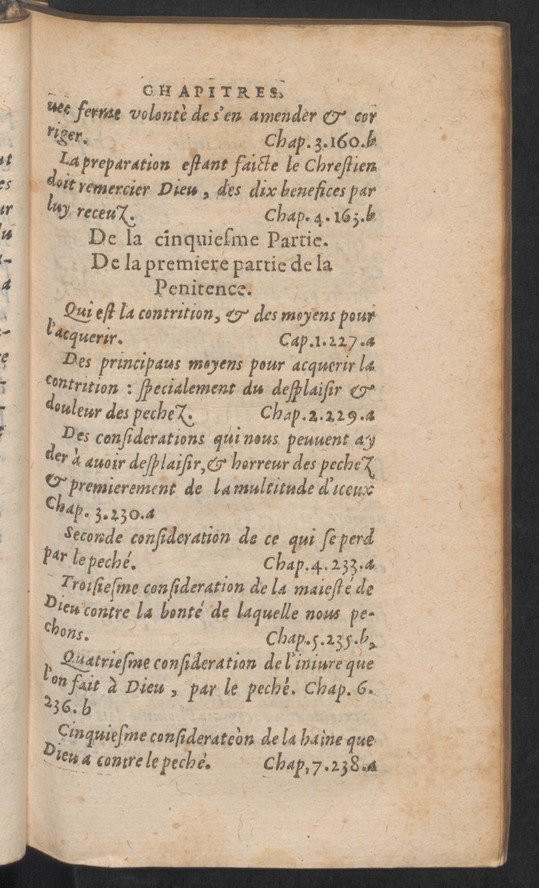 CHAPITRES.
uec ferme volontè de s'en amender & cor
riger. Chap. 3.160.b
La preparation eſtant faicte le Chreſtien
doit remercier Dieu, des dix benefices par
luy receuz. Chap. 4.163.b
De la cinquieſme Partie.
De la premiere partie de la
Penitence.
Qui eſt la contrition, & des moyens pour
l'acquerir. Cap.1.227.a
Des principaus moyens pour acquerir la
contrition : ſpecialement du deſplaiſir &
douleur des pechez. Chap.2.229.a
Des conſiderations qui nous peuuent ay
der à auoir deſplaiſir, & horreur des pechez
& premierement de la multitude d'iceux
Chap. 3.230.a
Seconde conſideration de ce qui ſe perd
par le peché. Chap.4.233.a
Troiſieſme conſideration de la maieſté de
Dieu contre la bonté de laquelle nous pe-
chons. Chap.5.235.b,
Quatrieſme conſideration de l'iniure que
l'on fait à Dieu, par le peché. Chap. 6.
236.b
Cinquieſme conſiderateòn de la haine que
Dieu a contre le peché. Chap,7.238.a